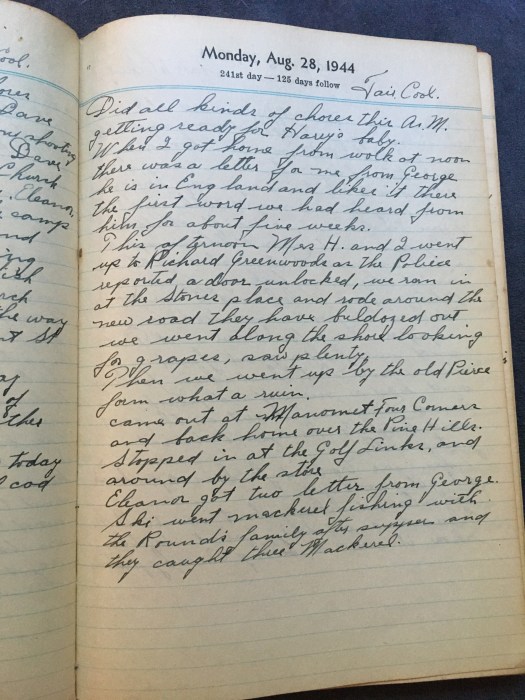 ool.
ores
Dave
shooting
Dave
Church
Eleanor
camp
nd
ing
ish
rch
the way
nt St
of
ther
today
cod
Monday, Aug. 28, 1944
241st day — 125 days follow
Fair Cool.
Did all kinds of chores this A.M.
getting ready for Harry's baby.
When I got home from walk at noon
there was a letter for me from George
he is in England and likes it there
the first word we had heard from
him for about five weeks.
This afternoon Mrs H. and I went
up to Richard Greenwoods as the Police
reported a door unlocked, we ran in
at the Stones place and rode around the
new road they have buldozed out
we went along the shore looking
for grapes, saw plenty.
Then we went up by the old Pierce
farm what a ruin.
came out at Manomet Four Corners
and back home over the Pine Hills.
Stopped in at the Golf Links, and
around by the store
Eleanor got two letter from George.
Ski went mackerel fishing with
the Rounds family after supper and
they caught three Mackerel.